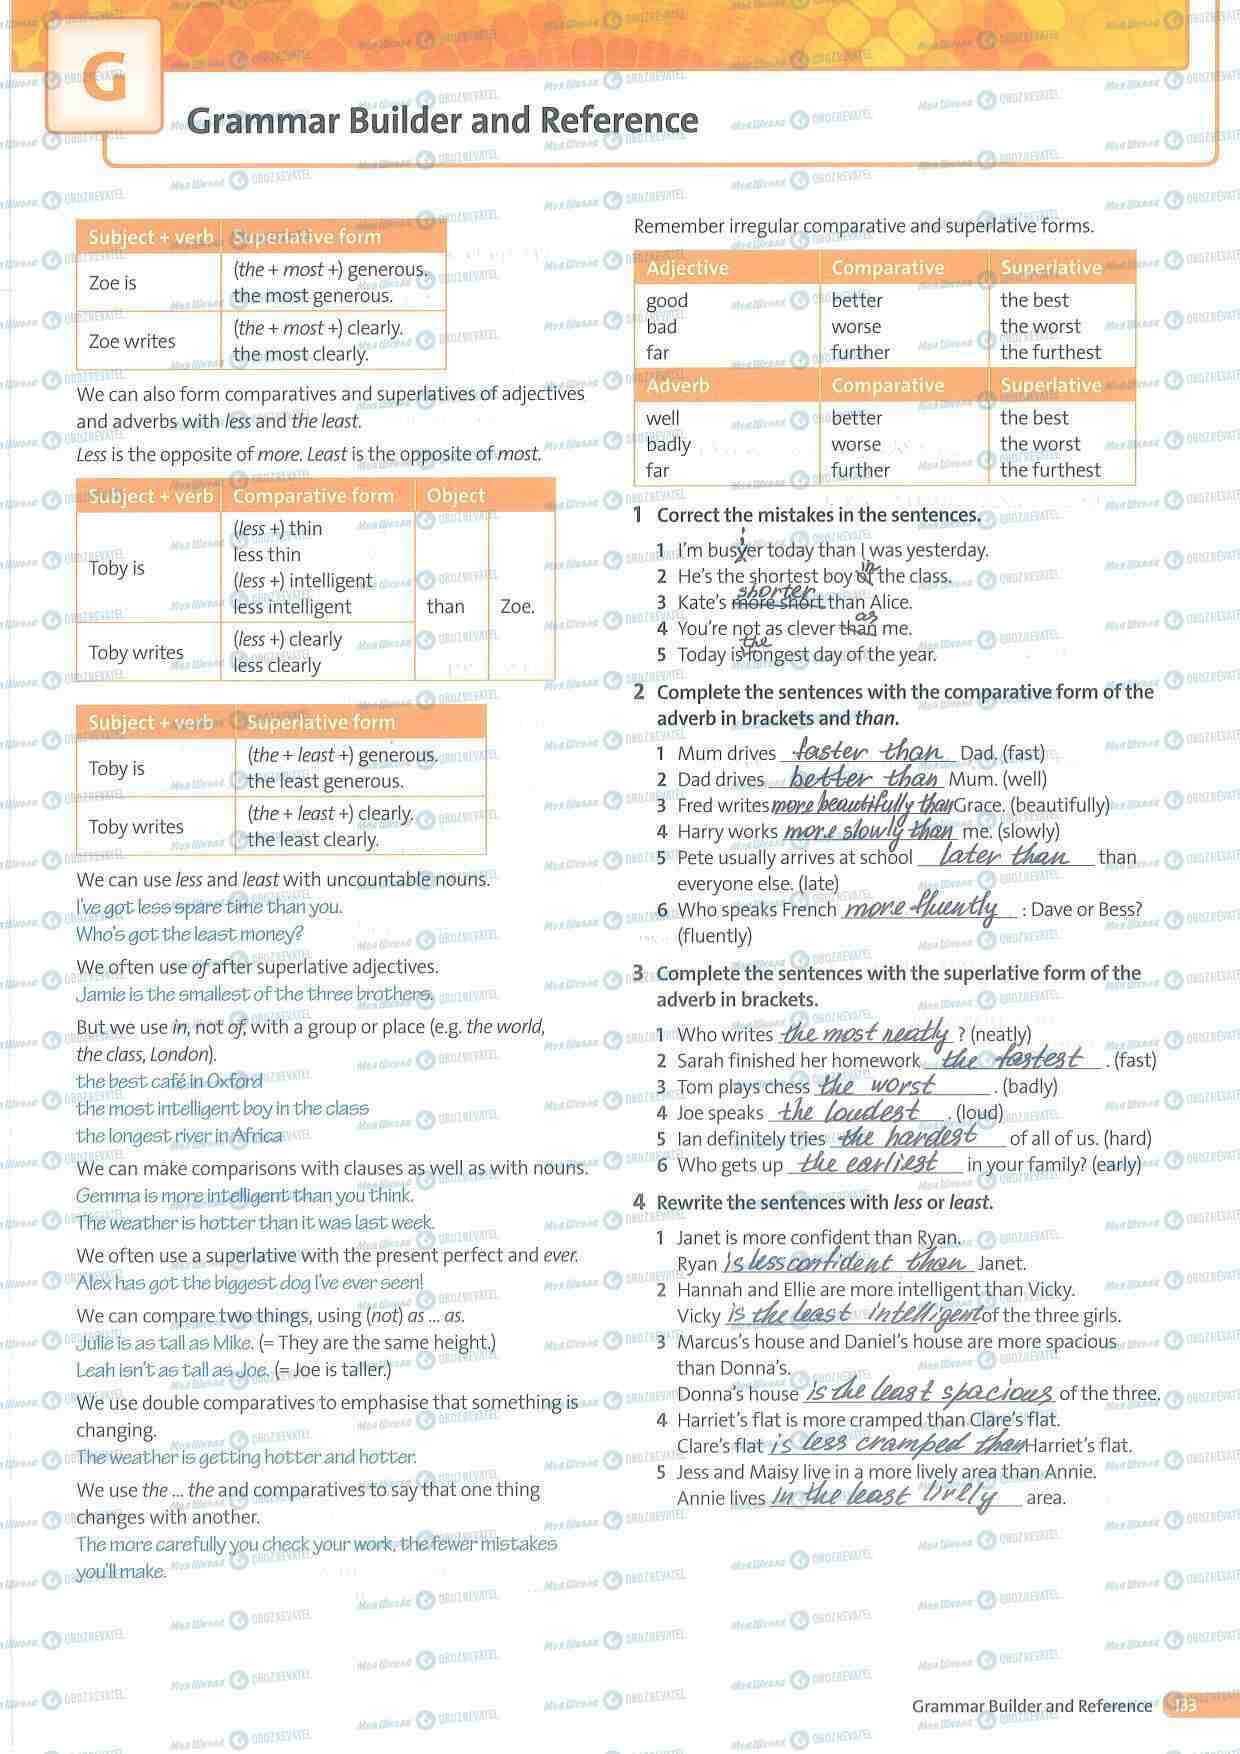 G
Grammar Builder and Reference
Subject + verb Superlative form
Zoe is (the + most +) generous.
the most generous.
Zoe writes (the + most +) clearly.
the most clearly.
We can also form comparatives and superlatives of adjectives
and adverbs with less and the least.
Less is the opposite of more. Least is the opposite of most.
Subject + verb Comparative form Object
Toby is (less +) thin
less thin
(less +) intelligent
less intelligent
than Zoe.
Toby writes (less +) clearly
less clearly
Subject + verb Superlative form
Toby is (the + least +) generous.
the least generous.
Toby writes (the + least +) clearly.
the least clearly.
We can use less and least with uncountable nouns.
I've got less spare time than you.
Who's got the least money?
We often use of after superlative adjectives.
Jamie is the smallest of the three brothers.
But we use in, not of, with a group or place (e.g. the world,
the class, London).
the best café in Oxford
the most intelligent boy in the class
the longest river in Africa
We can make comparisons with clauses as well as with nouns.
Gemma is more intelligent than you think.
The weather is hotter than it was last week.
We often use a superlative with the present perfect and ever.
Alex has got the biggest dog I've ever seen!
We can compare two things, using (not) as ... as.
Julie is as tall as Mike. (= They are the same height.)
Leah isn't as tall as Joe. (= Joe is taller.)
We use double comparatives to emphasise that something is
changing.
The weather is getting hotter and hotter.
We use the ... the and comparatives to say that one thing
changes with another.
The more carefully you check your work, the fewer mistakes
you'll make.
Remember irregular comparative and superlative forms.
Adjective Comparative Superlative
good better the best
bad worse the worst
far further the furthest
Adverb Comparative Superlative
well better the best
badly worse the worst
far further the furthest
1 Correct the mistakes in the sentences.
i
1 I'm busyer today than I was yesterday.
in
2 He's the shortest boy of the class.
shorter
3 Kate's more short than Alice.
as
4 You're not as clever than me.
the
5 Today is longest day of the year.
2 Complete the sentences with the comparative form of the
adverb in brackets and than.
1 Mum drives faster than Dad. (fast)
2 Dad drives better than Mum. (well)
3 Fred writes more beautifully than Grace. (beautifully)
4 Harry works more slowly than me. (slowly)
5 Pete usually arrives at school later than than
everyone else. (late)
6 Who speaks French more fluently : Dave or Bess?
(fluently)
3 Complete the sentences with the superlative form of the
adverb in brackets.
1 Who writes the most neatly ? (neatly)
2 Sarah finished her homework the fastest . (fast)
3 Tom plays chess the worst . (badly)
4 Joe speaks the loudest . (loud)
5 Ian definitely tries the hardest of all of us. (hard)
6 Who gets up the earliest in your family? (early)
4 Rewrite the sentences with less or least.
1 Janet is more confident than Ryan.
Ryan is less confident than Janet.
2 Hannah and Ellie are more intelligent than Vicky.
Vicky is the least intelligent of the three girls.
3 Marcus's house and Daniel's house are more spacious
than Donna's.
Donna's house is the least spacious of the three.
4 Harriet's flat is more cramped than Clare's flat.
Clare's flat is less cramped than Harriet's flat.
5 Jess and Maisy live in a more lively area than Annie.
Annie lives in the least lively area.
Grammar Builder and Reference 133